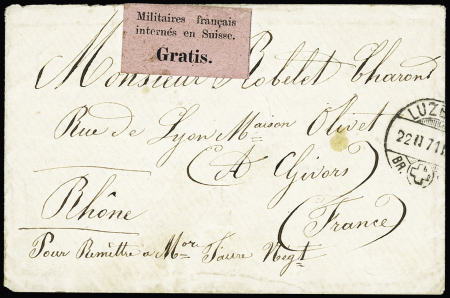 Militaires français
internés en Suisse.
Gratis.
Monsieur Robelet Charond
Rue de Lyon Maison Olivet
LUZE
22 II 71
BR.
(A Givors)
Rhône
(France)
Pour Remettre a Mor Faure Negt